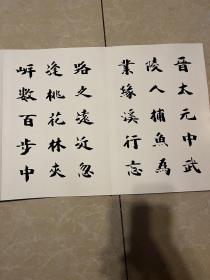 晉太元中武
陵人捕魚為
業緣溪行忘
路之遠近忽
逢桃花林夾
岍數百步中